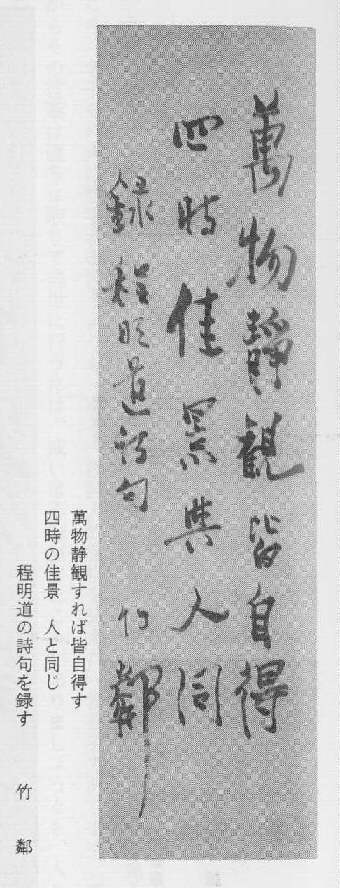 萬物静観皆自得
四時佳景與人同
録程明道詩句 竹鄰
萬物静観すれば皆自得す
四時の佳景 人と同じ
程明道の詩句を録す 竹鄰